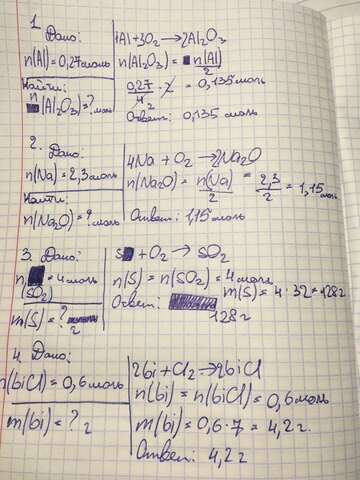 1.
Дано:
n(Al)=0,27моль
Найти:
n(Al2O3)=? моль
4Al+3O2→2Al2O3
n(Al2O3)= n(Al)/2
0,27/4 · 2 = 0,135моль
Ответ: 0,135 моль
2. Дано:
n(Na)=2,3моль
Найти:
n(Na2O)=? моль
4Na+O2→2Na2O
n(Na2O)= n(Na)/2 = 2,3/2 = 1,15моль
Ответ: 1,15моль
3. Дано:
n(SO2)=4моль
m(S)=? г
S+O2→SO2
n(S)=n(SO2)=4моль
m(S)=4·32=128г
Ответ: 128г
4. Дано:
n(biCl)=0,6моль
m(bi)=? г
2bi+Cl2→2biCl
n(bi)=n(biCl)=0,6моль
m(bi)=0,6·7=4,2г.
Ответ: 4,2г